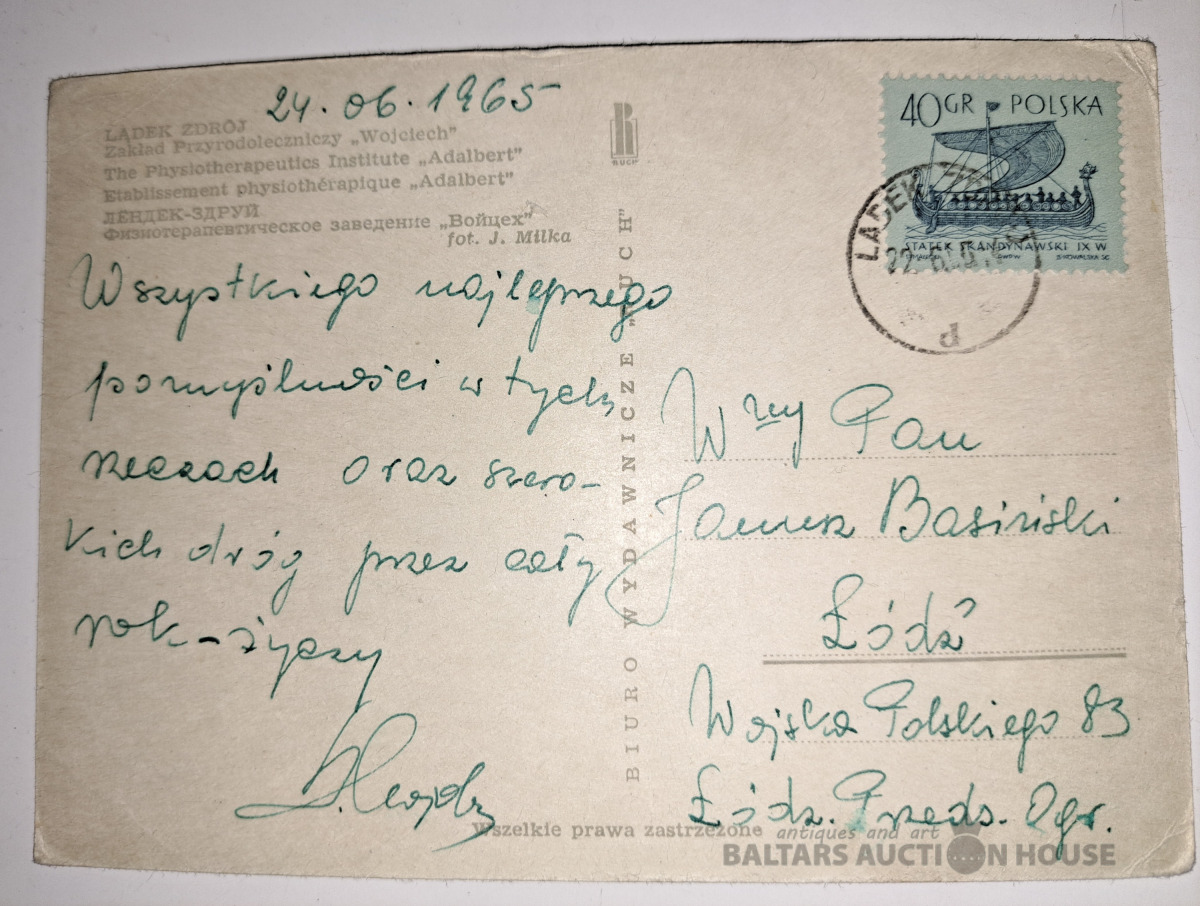 24.06.1965
LĄDEK ZDRÓJ
Zakład Przyrodoleczniczy „Wojciech"
The Physiotherapeutics Institute „Adalbert"
Etablissement physiothérapique „Adalbert"
ЛЕНДЕК-ЗДРУЙ
Физиотерапевтическое заведение „Войцех"
fot. J. Milka
Wszystkiego najlepszego
pomyślności w tych
rzeczach oraz szero-
kich dróg przez cały
rok-życzy
Wszelkie prawa zastrzeżone
BIURO WYDAWNICZE „RUCH"
RUCH
40 GR POLSKA
STATEK SKANDYNAWSKI IX W
LĄDEK
22
P
Wny Pan
Janusz Basiński
Łódź
Wojska Polskiego 83
Łódz. Przeds. Ogr.
antiques and art
BALTARS AUCTION HOUSE